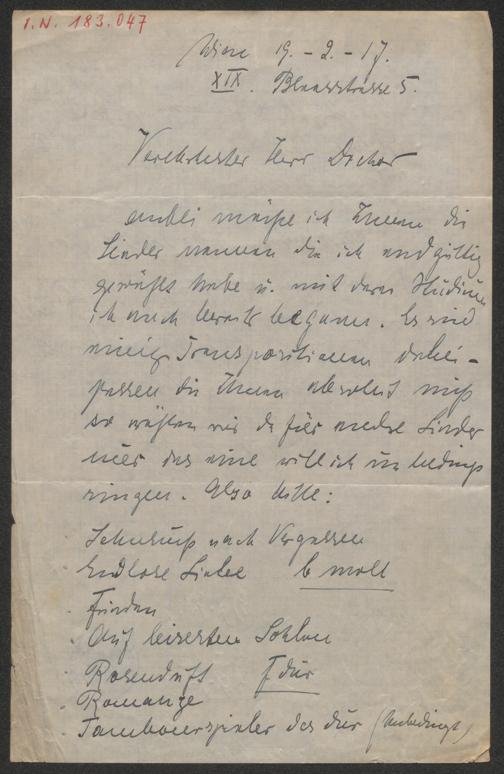 I.N. 183.047
Wien 19. - 2. - 17.
XIX. Blaasstrasse 5.
Verehrtester Herr Doctor
anbei möchte ich Ihnen die
Lieder nennen die ich endgültig
gewählt habe u. mit deren Studium
ich auch bereits begann. Es sind
einige Transpositionen dabei -
passen die Ihnen absolut nicht
so wählen wir dafür andre Lieder
nur das eine will ich unbedingt
singen. Also bitte:
Sehnsucht nach Vergessen
Endlose Liebe b moll
Frieden
Auf leisesten Sohlen
Rosenduft F dur
Romanze
Tambourspieler des dur (Unbedingt)